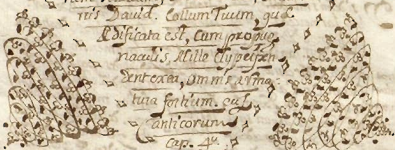 nis David. Collum Tuum, quæ
Ædificata est, Cum propug
naculis, Mille Clypei pen
dent ex ea, omnis Arma
tura fortium.
Canticorum
Cap. 4.